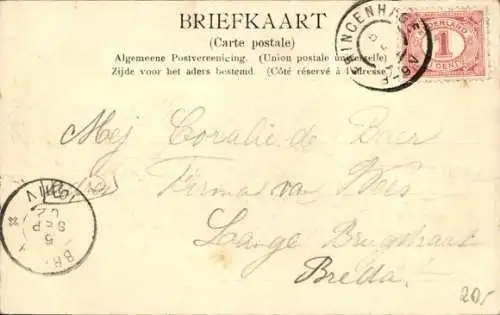 BRIEFKAART
(Carte postale)
Algemeene Postvereeniging. (Union postale universelle)
Zijde voor het adres bestemd. (Côté réservé à l'adresse)
PRINCENHAGE
NEDERLAND
1
CENT
Mej Coralie de Baer
Firma van Wees
Lange Brugstraat
Breda
BR
5
SEP
20,-